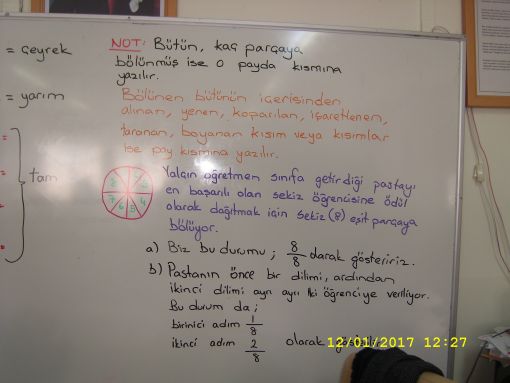 = çeyrek
= yarım
tam
NOT: Bütün, kaç parçaya
bölünmüş ise o payda kısmına
yazılır.
Bölünen bütünün içerisinden
alınan, yenen, koparılan, işaretlenen,
taranan, boyanan kısım veya kısımlar
ise pay kısmına yazılır.
Yalçın öğretmen sınıfa getirdiği pastayı
en başarılı olan sekiz öğrencisine ödül
olarak dağıtmak için sekiz (8) eşit parçaya
bölüyor.
a) Biz bu durumu; 8/8 olarak gösteririz.
b) Pastanın önce bir dilimi, ardından
ikinci dilimi ayrı ayrı iki öğrenciye veriliyor.
Bu durum da;
birinici adım 1/8
ikinci adım 2/8 olarak
12/01/2017 12:27